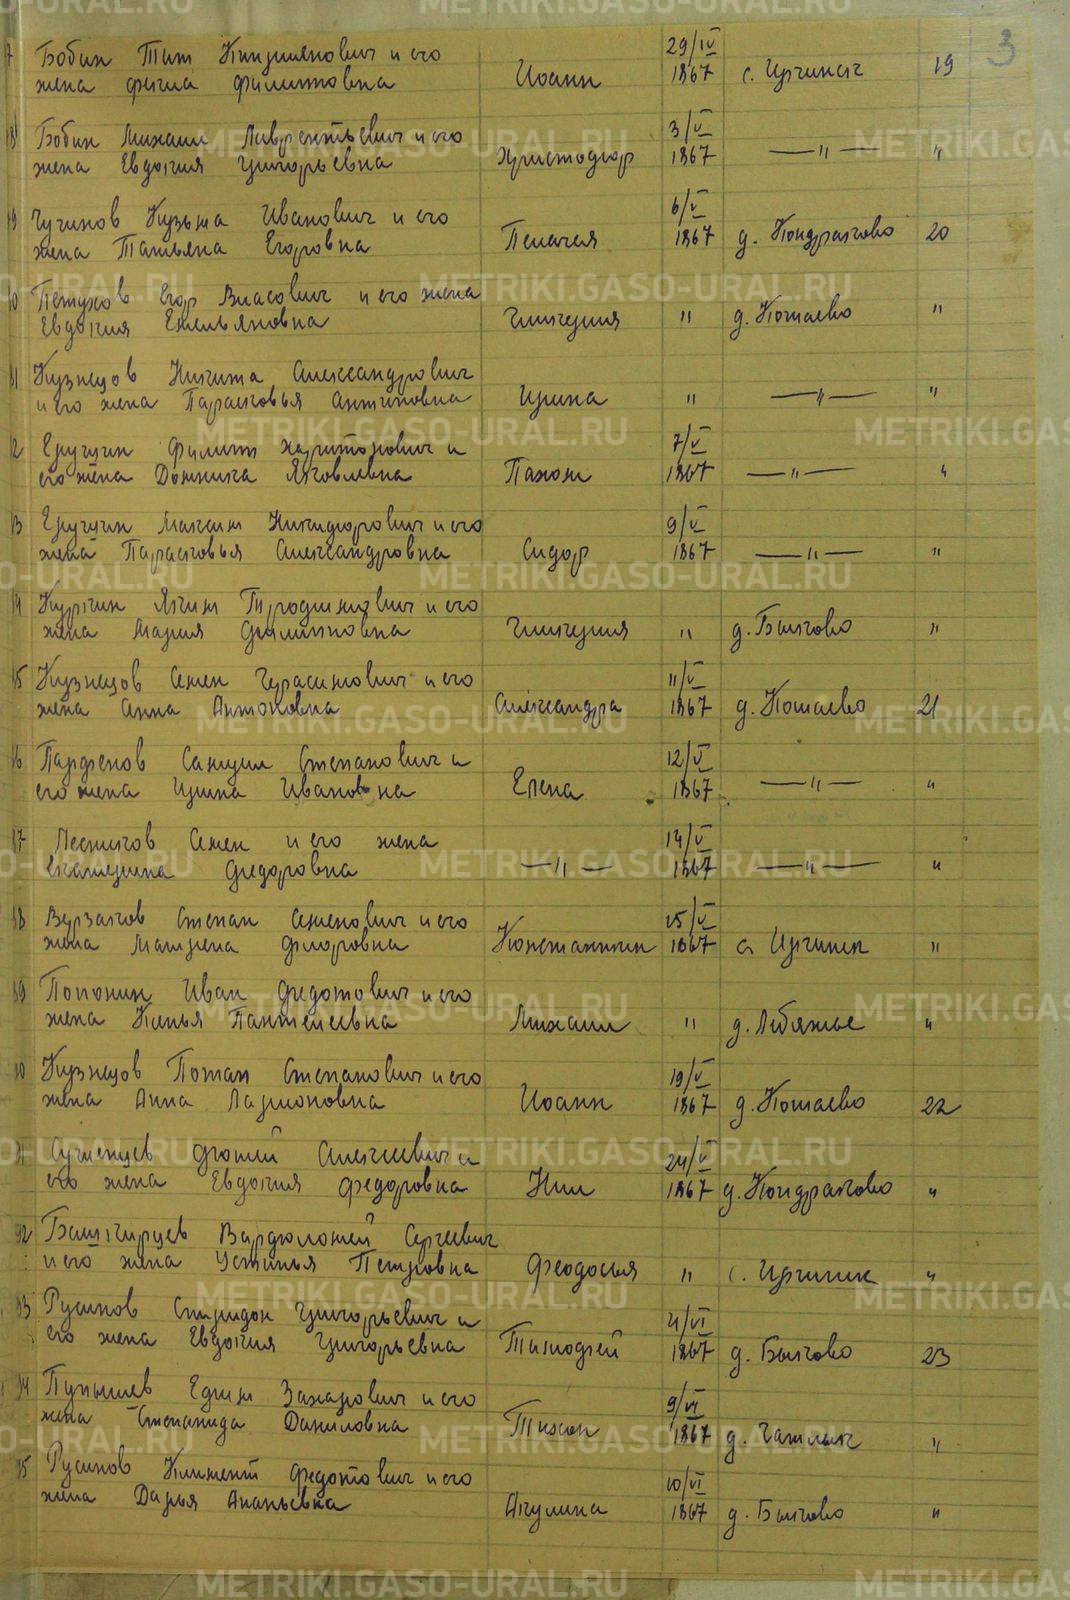 3
7 Бобин Тит Кипдиянович и его
жена Фекла Филипповна Иоанн 29/IV 1867 с. Иргинск 19
Бобин Михаил Лаврентьевич и его
жена Евдокия Григорьевна Христофор 3/V 1867 —"— "
Чугинов Кузьма Иванович и его
жена Татьяна Егоровна Пелагея 6/V 1867 д. Кондраково 20
Петухов Егор Власович и его жена
Евдокия Емельяновна Гликерия " д. Кошаево "
81 Кузнецов Никита Александрович
и его жена Парасковья Антиповна Ирина " —"— "
82 Еручин Филипп Харитонович и
его жена Домника Яковлевна Пахом 7/V 1867 —"— "
83 Еручин Максим Никифорович и его
жена Парасковья Александровна Сидор 9/V 1867 —"— "
84 Куркин Яким Трофимович и его
жена Мария Филипповна Гликерия " д. Быково "
85 Кузнецов Семен Герасимович и его
жена Анна Антоновна Александра 11/V 1867 д. Кошаево 21
86 Парфенов Самуил Степанович и
его жена Ирина Ивановна Елена 12/V 1867 —"— "
87 Лесников Семен и его жена
Екатерина Федоровна —"— 14/V 1867 —"— "
88 Степан Семенович и его
жена Матрена Флоровна Константин 15/V 1867 с. Иргинск "
89 Попонин Иван Федотович и его
жена Пантелеевна Михаил " д. Лебяжье "
90 Кузнецов Потап Степанович и его
жена Анна Ларионовна Иоанн 19/V 1867 д. Кошаево 22
91 Фотий Алексеевич и
его жена Евдокия Федоровна Нил 24/V 1867 д. Кондраково "
92 Башкирцев Варфоломей Сергеевич
и его жена Устинья Петровна Феодосья " с. Иргинск "
93 Русинов Спиридон Григорьевич и
его жена Евдокия Григорьевна Тимофей 4/VI 1867 д. Быково 23
94 Пупышев Ефим Захарович и его
жена Степанида Даниловна Тихон 9/VI 1867 д. Чатлык "
95 Русинов Климент Федотович и его
жена Дарья Ананьевна Акулина 10/VI 1867 д. Быково "
METRIKI.GASO-URAL.RU